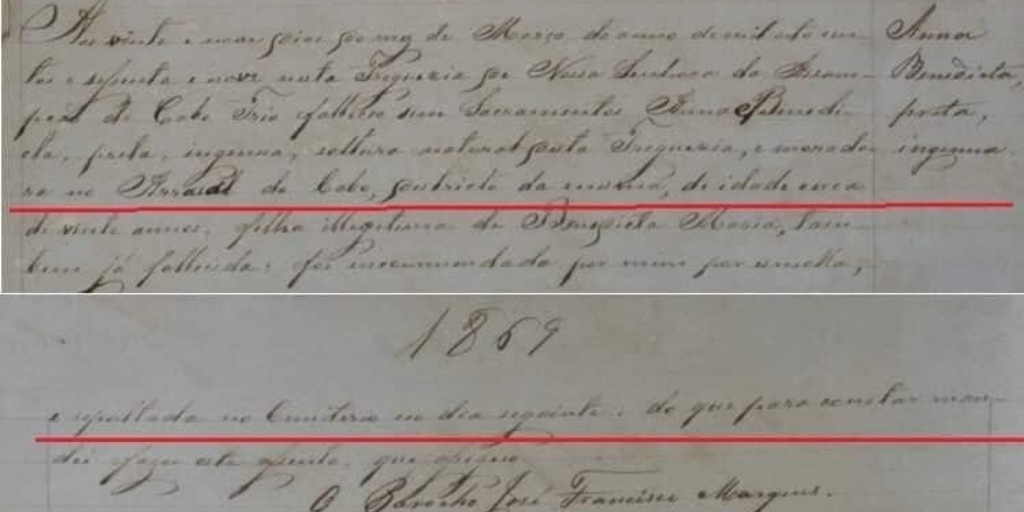 Aos vinte e nove dias do mez de Março do anno de mil oito cen-
tos e sessenta e nove nesta Freguezia de Nossa Senhora da Assum-
pção de Cabo Frio falleceo sem Sacramentos Anna Benedi-
cta, preta, ingenua, solteira natural desta Freguezia, e morado-
ra no Arraial do Cabo, districto da mesma, de idade cerca
de vinte annos, filha illegitima de Benedicta Maria, tam-
bem já fallecida: foi encommendada por mim por esmolla,
Anna
Benedicta,
preta,
ingenua
1869
e sepultada no Cemiterio no dia seguinte: do que para constar man-
dei fazer este assento, que assigno
O Parocho José Francisco Marques.